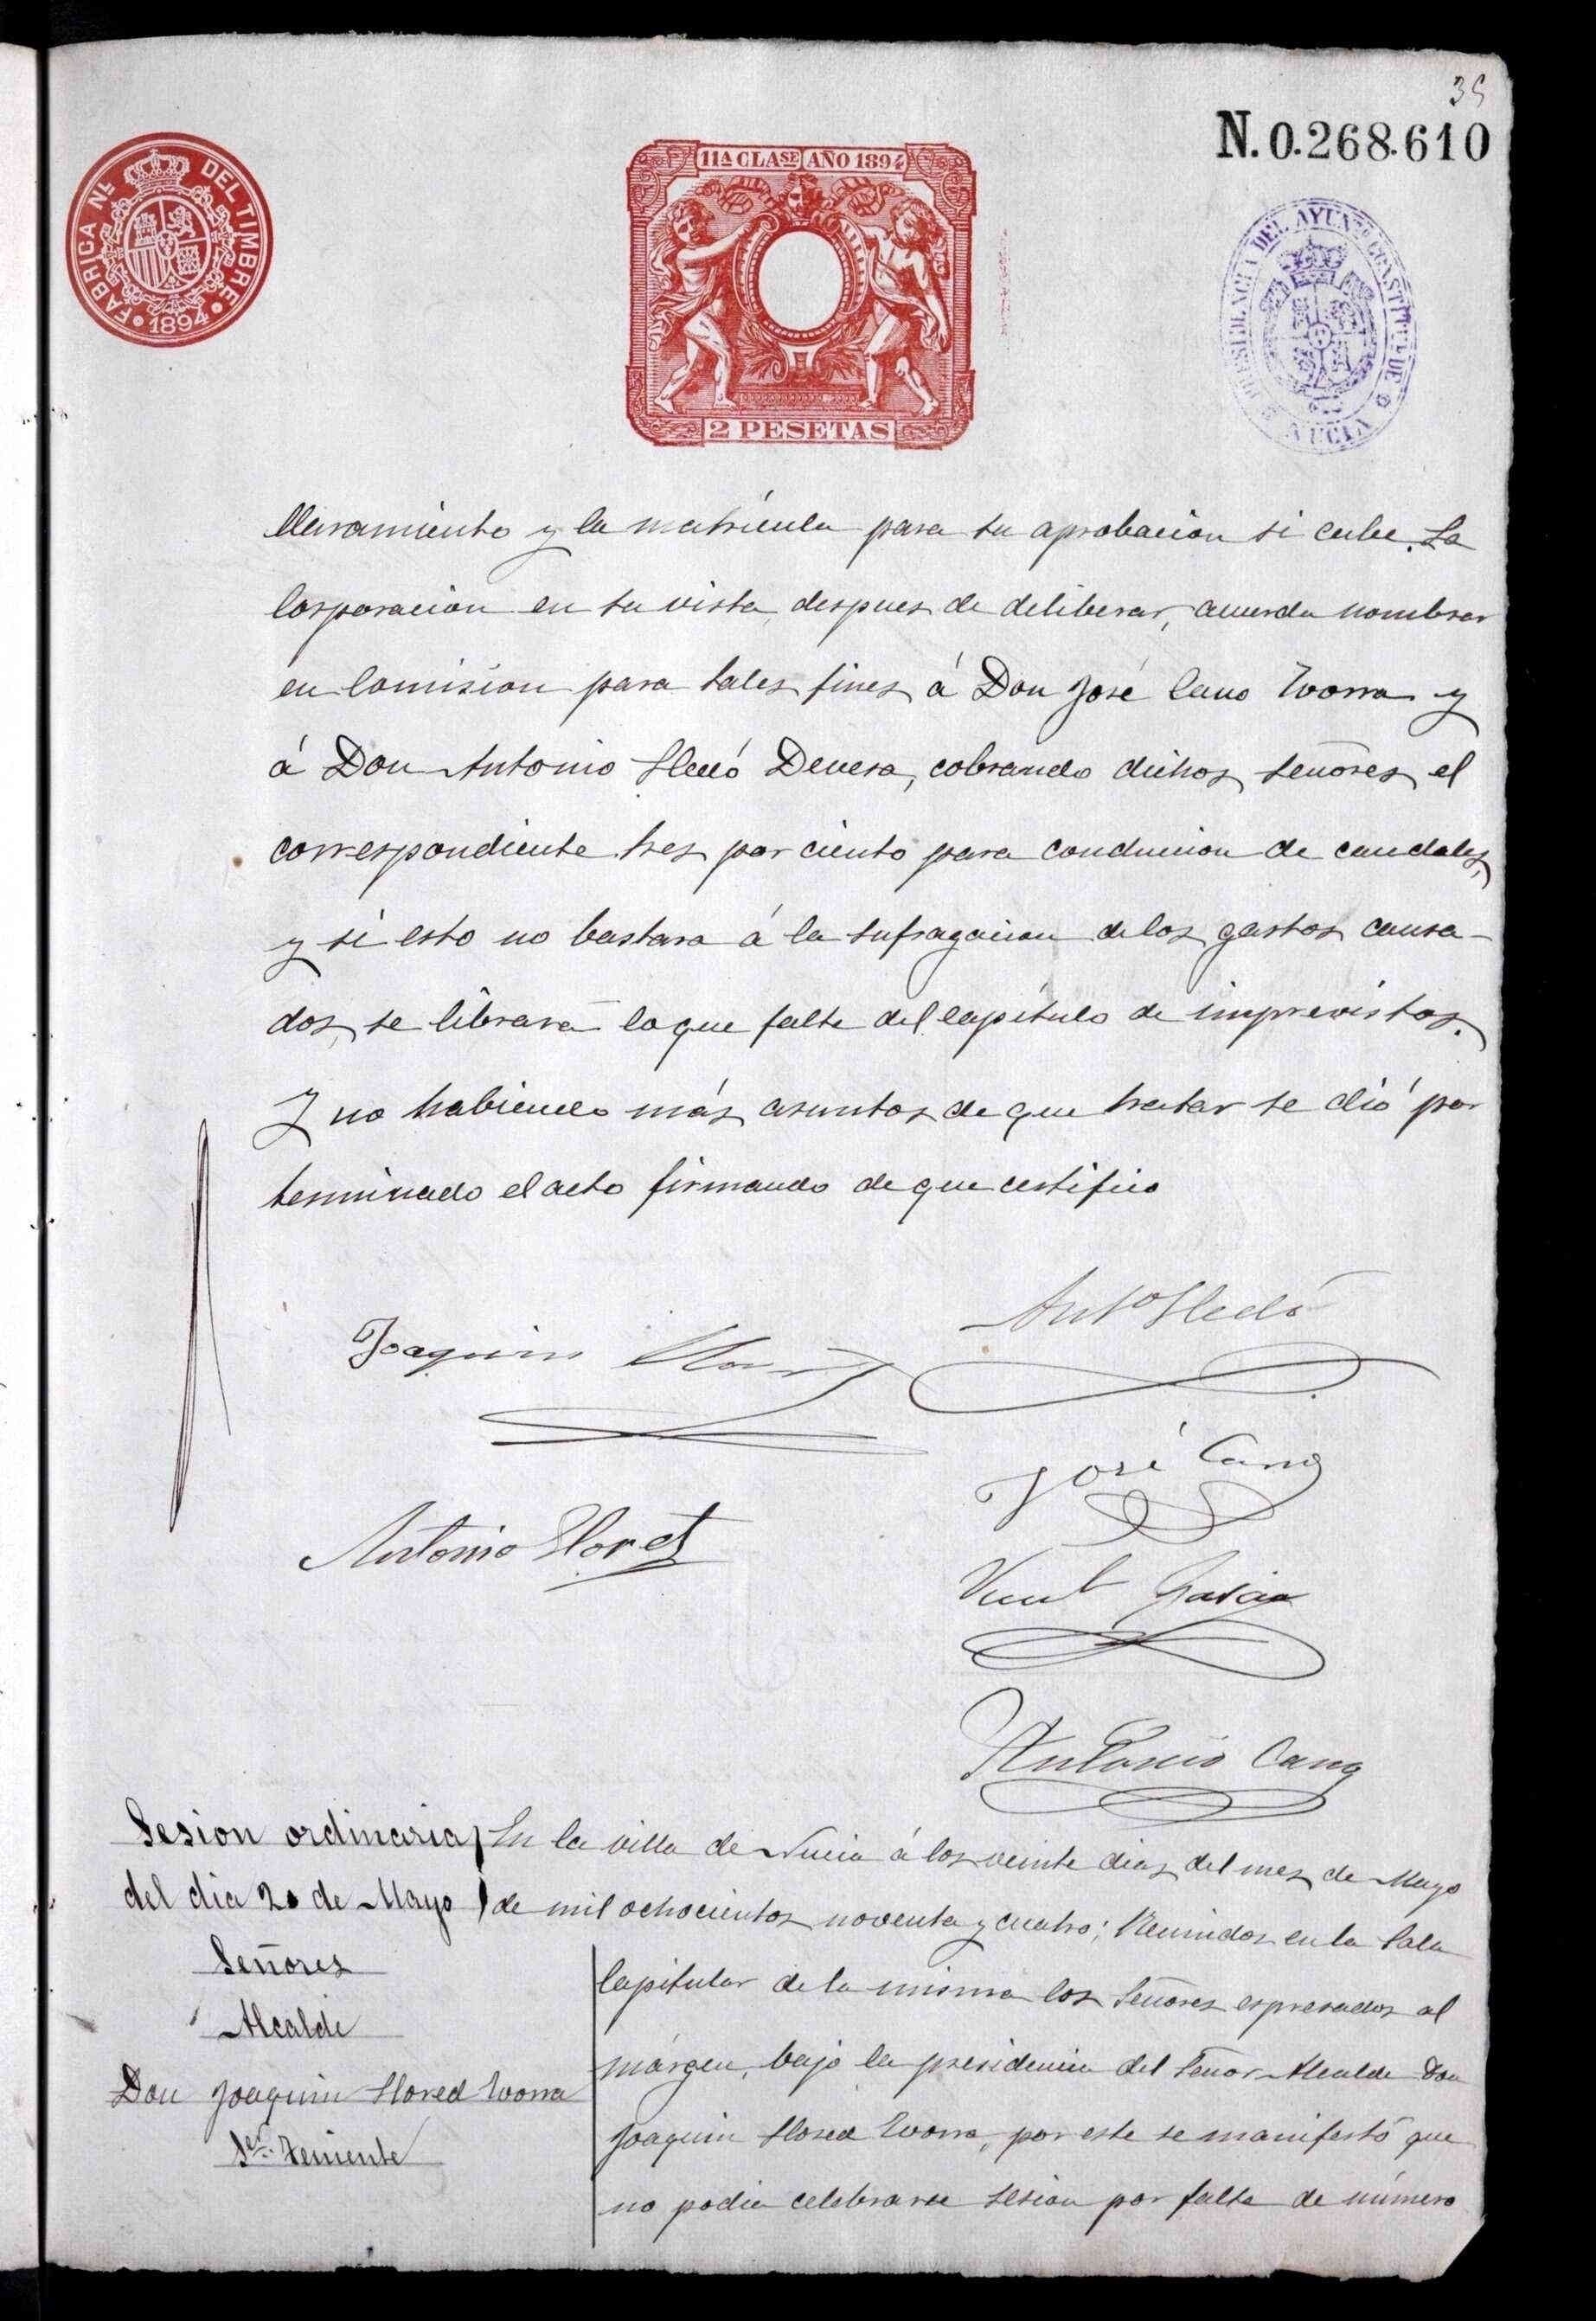 35
N.0.268.610
FABRICA NL. DEL TIMBRE
1894
11A CLASE AÑO 1894
2 PESETAS
PRESIDENCIA DEL AYUNTO CONSTITUL. DE NUCIA
llaramiento y la matrícula para su aprobacion si cabe. La
Corporacion en su vista, despues de deliberar, acuerda nombrar
en Comision para tales fines á Don José Cano Ivorra y
á Don Antonio Lledó Devesa, cobrando dichos Señores el
correspondiente tres por ciento para conduccion de caudales,
y si esto no bastara á la sufragacion de los gastos causa-
dos, se librará lo que falte del Capítulo de imprevistos.
Y no habiendo más asuntos de que tratar se dió por
terminado el acto firmando de que certifico
Anto Lledó
Joaquin Lloret
José Cano
Antonio Lloret
Vicente Garcia
Antonio Cano
Sesion ordinaria
del dia 20 de Mayo
Señores
Alcalde
Don Joaquin Llored Ivorra
1er. Teniente
En la villa de Nucia á los veinte dias del mes de Mayo
de mil ochocientos noventa y cuatro; Reunidos en la Sala
Capitular de la misma los Señores espresados al
márgen, bajo la presidencia del Señor Alcalde Don
Joaquin Llored Ivorra, por este se manifestó que
no podia celebrarse sesion por falta de número